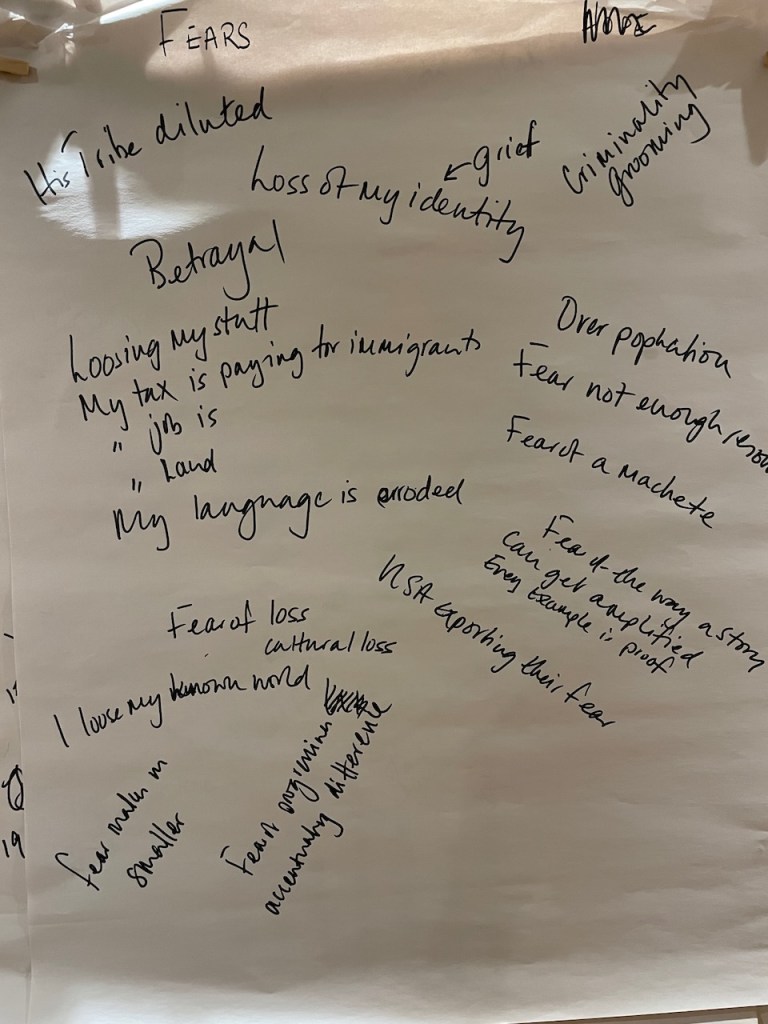 FEARS
His Tribe diluted
Loss of my identity
← grief
Criminality
grooming
Betrayal
Loosing my stuff
My tax is paying for immigrants
" job is
" Land
My language is erroded
Over pophation
Fear not enough
Fear of a machete
Fear of the way a story
can get amplified
Every Example is proof
USA exporting their fear
Fear of loss
cultural loss
I loose my known world
Fear makes
smaller
Fear of
accentuating difference